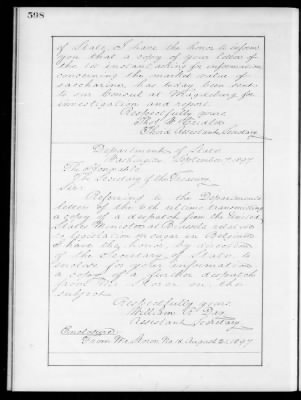 598
of State, I have the honor to inform
you that a copy of your letter of
the 1st instant asking for information
concerning the market value of
saccharine has today been sent
to our Consul at Magdeburg for
investigation and report.
Respectfully yours,
Thos. W. Cridler
Third Assistant Secretary
Department of State
Washington September 7, 1897
The Honorable
The Secretary of the Treasury.
Sir:
Referring to the Department's
letter of the ultimo transmitting
a copy of a despatch from the United
States Minister at Brussels relative
to legislation on sugar in Belgium
I have the honor, by direction
of the Secretary of State, to
enclose for your information
a copy of a further despatch
from Mr. Storer on the
subject.
Respectfully yours,
William R. Day
Assistant Secretary.
Enclosure:
From Mr. Storer, No. 18, August 21, 1897